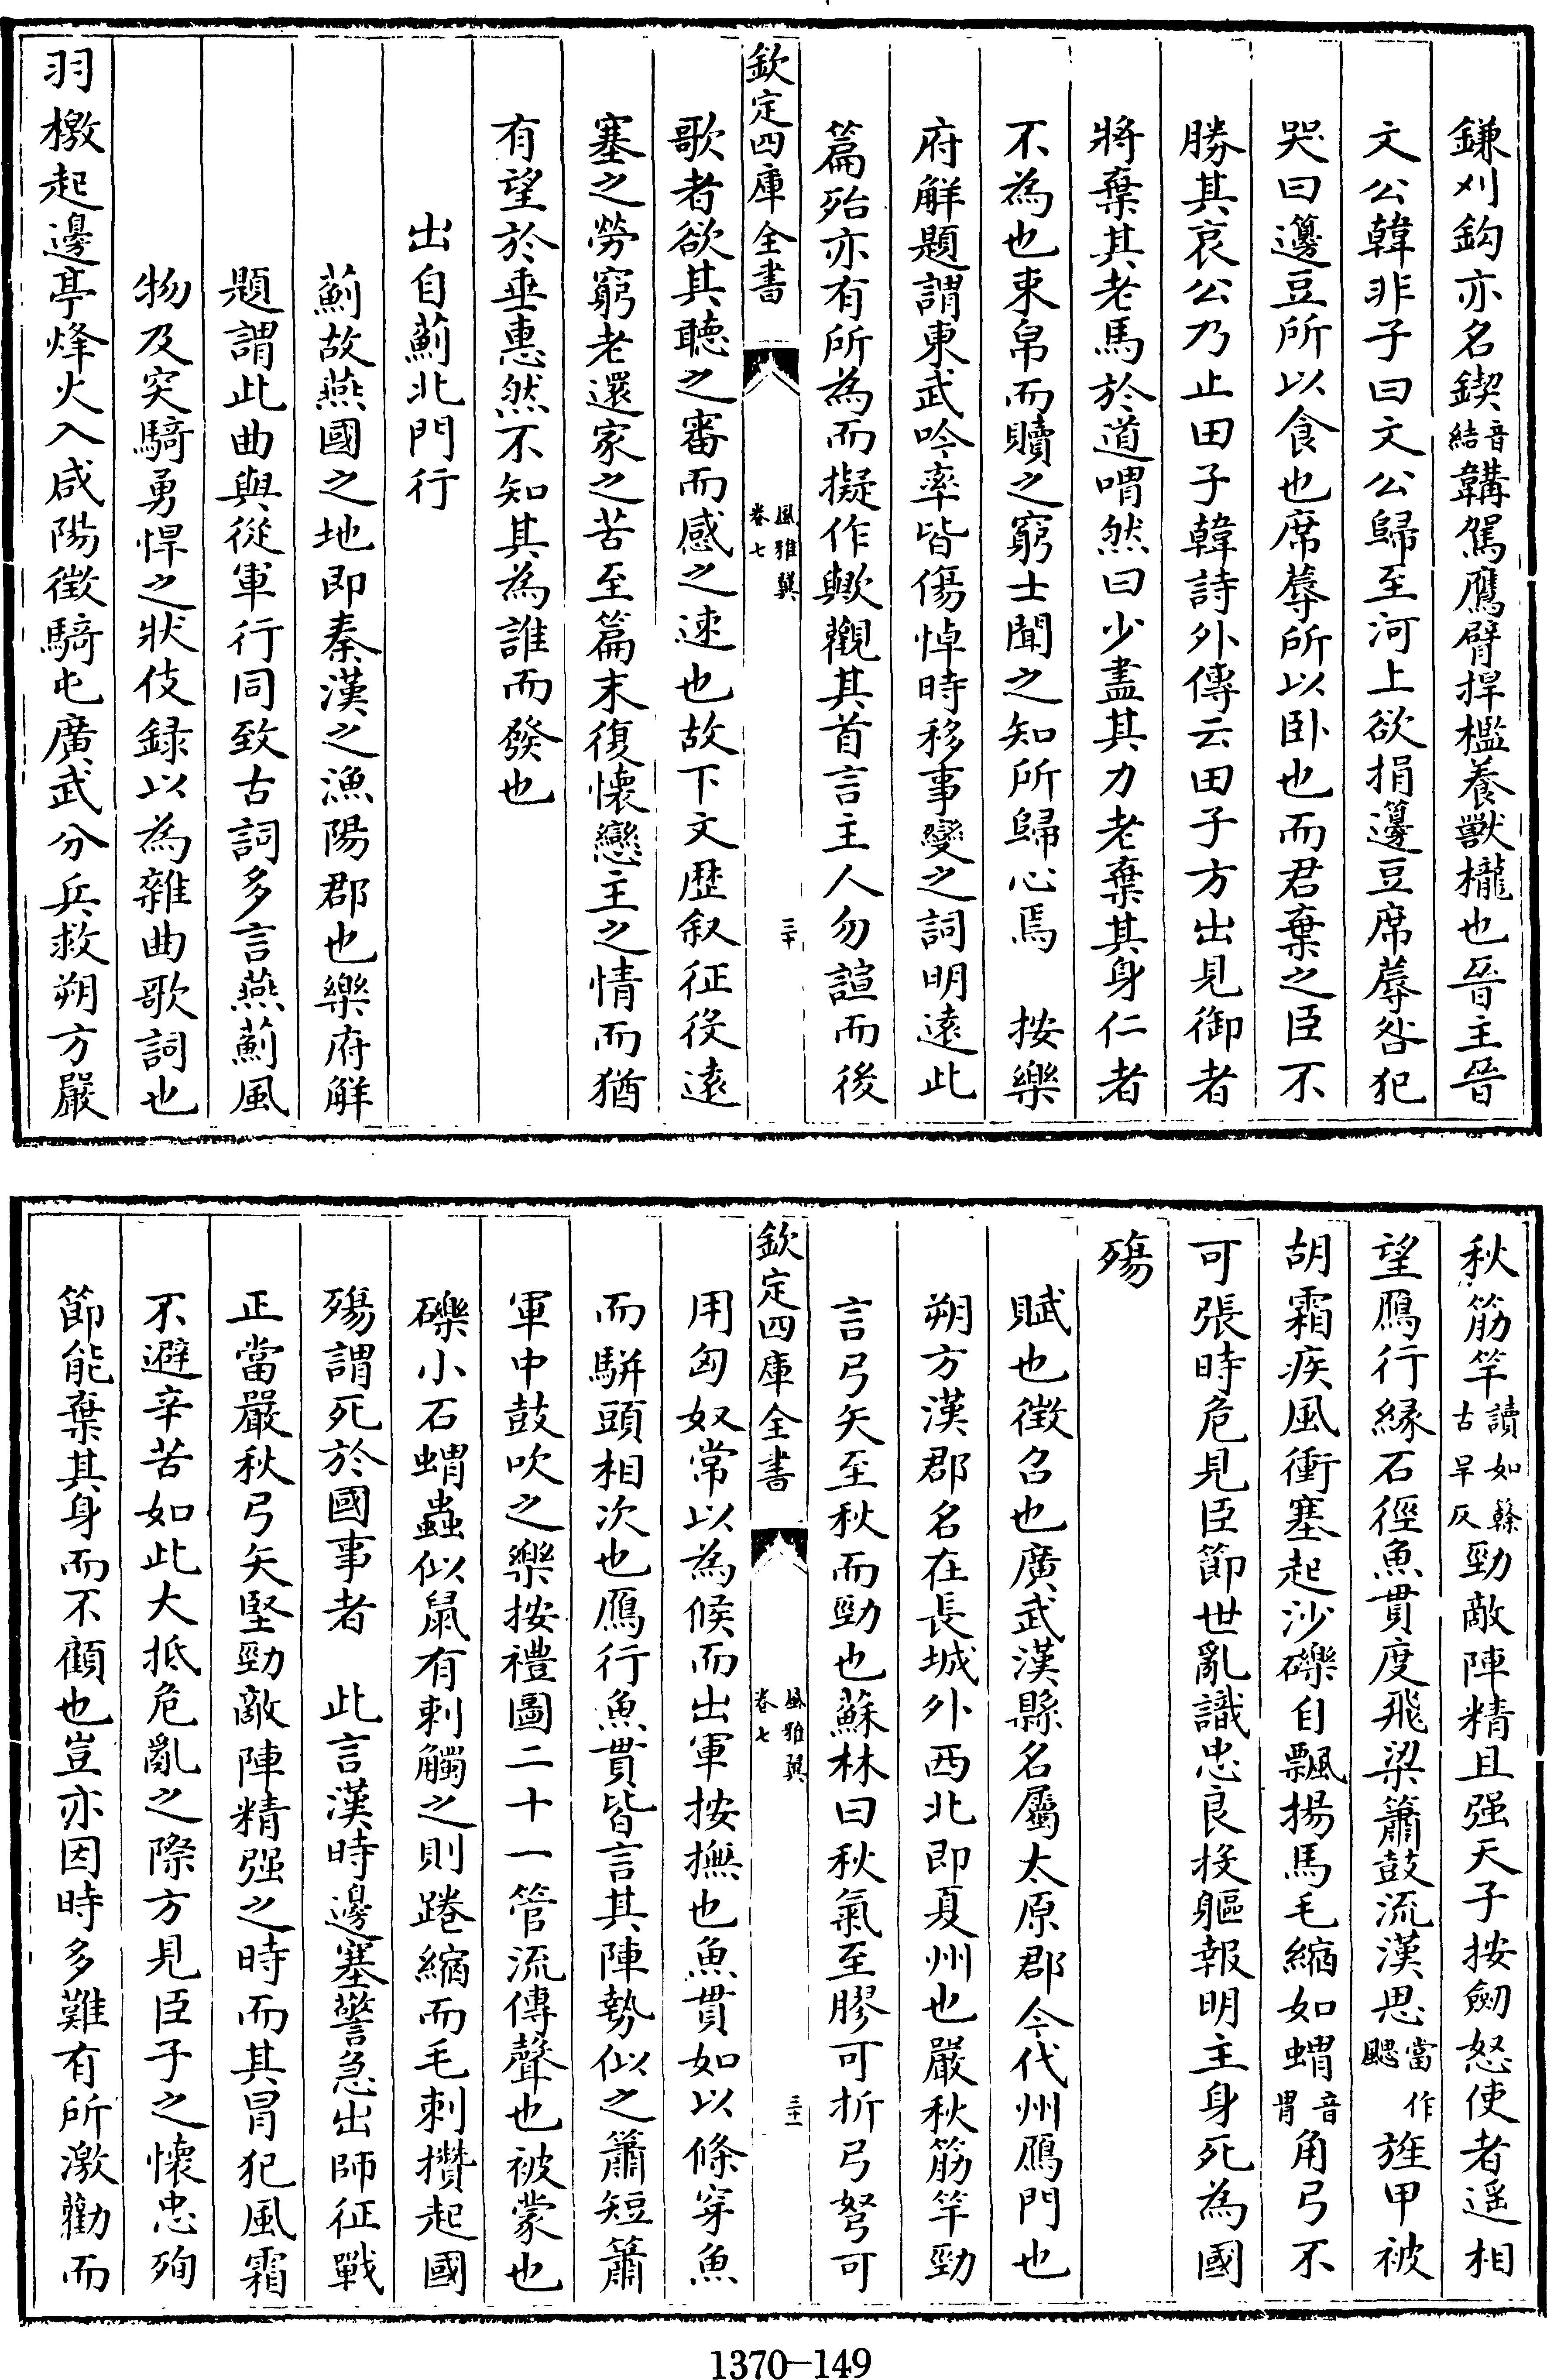 鎌刈鈎亦名鍥音結韝駕鷹臂捍檻養獸櫳也晉主晉
文公韓非子曰文公歸至河上欲捐籩豆席蓐咎犯
哭曰籩豆所以食也席蓐所以卧也而君棄之臣不
勝其哀公乃止田子韓詩外傳云田子方出見御者
將棄其老馬於道喟然曰少盡其力老棄其身仁者
不為也束帛而贖之窮士聞之知所歸心焉　按樂
府解題謂東武吟率皆傷悼時移事變之詞明遠此
篇殆亦有所為而擬作歟觀其首言主人勿諠而後
欽定四庫全書　風雅翼卷七　三十
歌者欲其聽之審而感之速也故下文歴叙征役遠
塞之勞窮老還家之苦至篇末復懷戀主之情而猶
有望於垂惠然不知其為誰而發也
出自薊北門行
薊故燕國之地即秦漢之漁陽郡也樂府解
題謂此曲與從軍行同致古詞多言燕薊風
物及突騎勇悍之狀伎録以為雜曲歌詞也
羽檄起邊亭烽火入咸陽徵騎屯廣武分兵救朔方嚴
秋筋竿讀如簳古旱反勁敵陣精且强天子按劒怒使者遥相
望鴈行縁石徑魚貫度飛梁簫鼓流漢思當作颸旌甲被
胡霜疾風衝塞起沙礫自飄揚馬毛縮如蝟音胃角弓不
可張時危見臣節世亂識忠良投軀報明主身死為國
殤
賦也徵召也廣武漢縣名屬太原郡今代州鴈門也
朔方漢郡名在長城外西北即夏州也嚴秋筋竿勁
言弓矢至秋而勁也蘇林曰秋氣至膠可折弓弩可
欽定四庫全書　風雅翼卷七　三十一
用匈奴常以為候而出軍按撫也魚貫如以條穿魚
而駢頭相次也鴈行魚貫皆言其陣勢似之簫短簫
軍中鼓吹之樂按禮圖二十一管流傳聲也被蒙也
礫小石蝟蟲似鼠有刺觸之則踡縮而毛刺攢起國
殤謂死於國事者　此言漢時邊塞警急出師征戰
正當嚴秋弓矢堅勁敵陣精强之時而其冒犯風霜
不避辛苦如此大抵危亂之際方見臣子之懷忠殉
節能棄其身而不顧也豈亦因時多難有所激勸而
1370—149